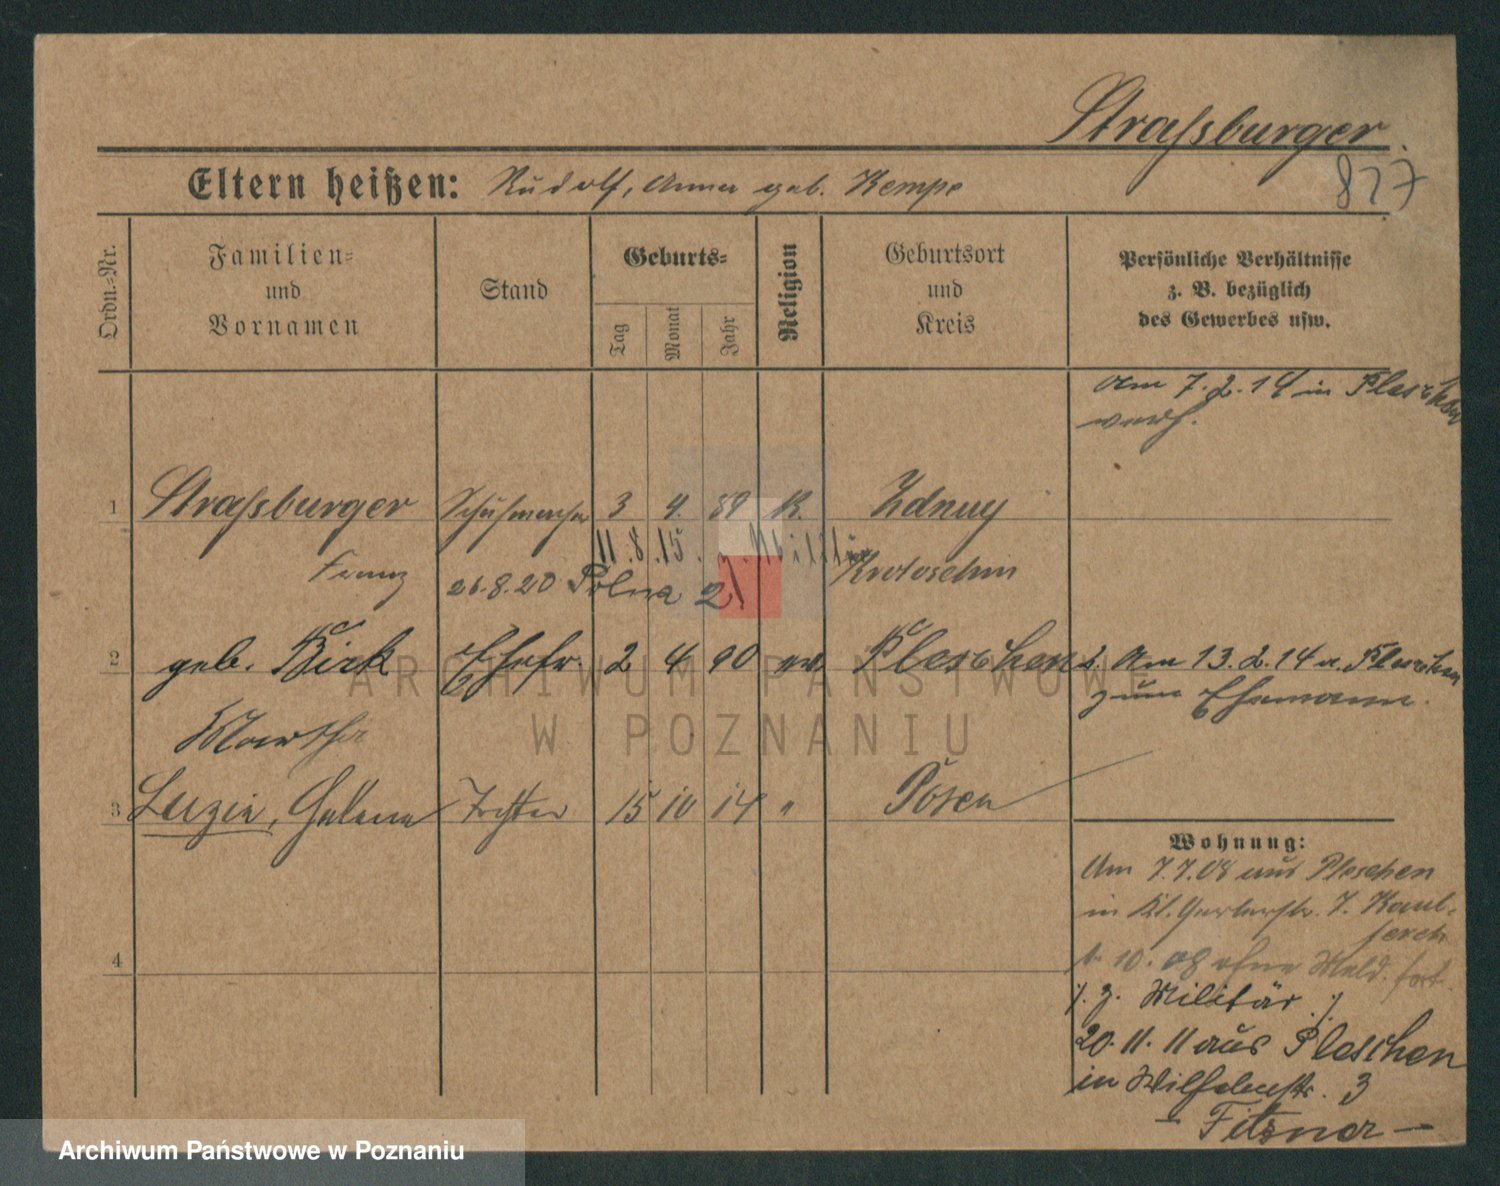 Straßburger.
827
Eltern heißen: Rudolf, Anna geb. Kempe
Ordn.-Nr.
Familien-
und
Vornamen
Stand
Geburts-
Tag
Monat
Jahr
Religion
Geburtsort
und
Kreis
Persönliche Verhältnisse
z. B. bezüglich
des Gewerbes usw.
Am 7.2.14 in Pleschen
verh.
1 Straßburger Schuhmacher 3 4. 89 K. Zduny
11.8.15. z. Militär
Franz Krotoschin
26.8.20 Polna 21
2 geb. Kirk Ehefr. 2 4 90 ev. Pleschen
Am 13.2.14 a. Pleschen
zum Ehemann.
Martha
3 Luzie, Helene Tochter 15 10 14 " Posen
4
Wohnung:
Am 7.7.08 aus Pleschen
in Kl. Gerberstr. 7.
1. 10. 08 ohne Meld. fort.
/. z. Militär ./
20.11.11 aus Pleschen
in Wilhelmstr. 3
- Fitzner -
ARCHIWUM PAŃSTWOWE
W POZNANIU
Archiwum Państwowe w Poznaniu